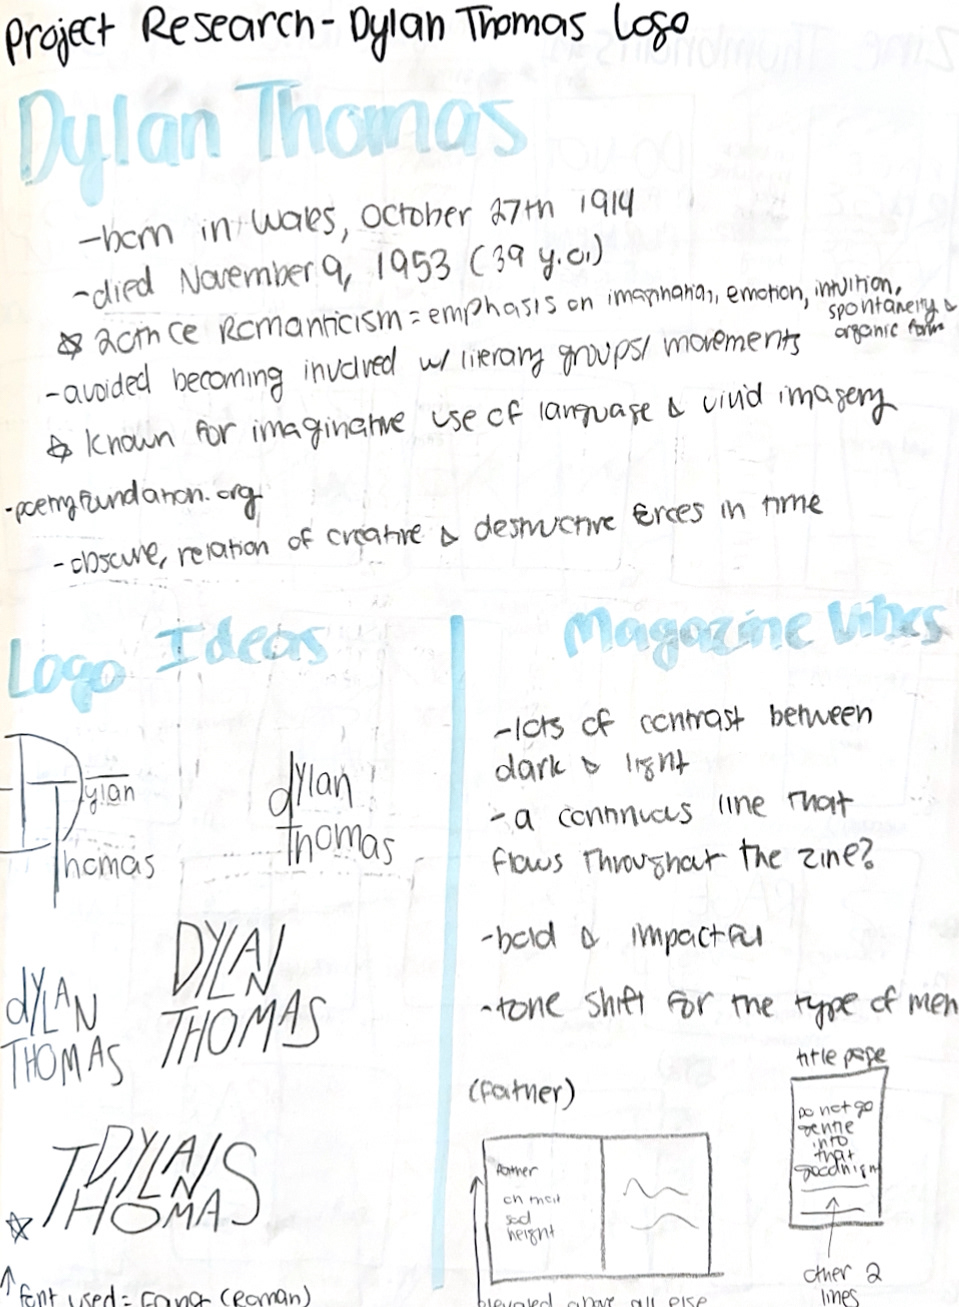 Project Research - Dylan Thomas Logo
Dylan Thomas
- born in Wales, October 27th 1914
- died November 9, 1953 (39 y.o.)
☆ Romanticism = emphasis on imagination, emotion, intuition,
spontaneity &
organic form
- avoided becoming involved w/ literary groups/ movements
☆ known for imaginative use of language & vivid imagery
- poetryfoundation.org
- obscure, relation of creative & destructive forces in time
Logo Ideas
Dylan
Thomas
dylan
Thomas
dYLAN
THOMAS
DYLAN
THOMAS
DYLAN
THOMAS
☆
↑ font used = (Roman)
Magazine Vibes
- lots of contrast between
dark & light
- a continuous line that
flows throughout the zine?
- bold & impactful
- tone shift for the type of men
(father)
Father
on that
sad
height
elevated above all else
title page
Do not go
gentle
into
that
goodnight
other 2
lines